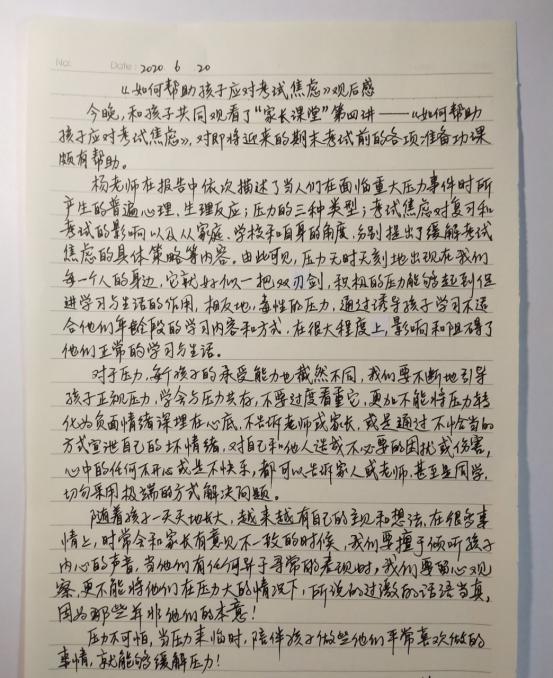 No:
Date: 2020 6 20
《如何帮助孩子应对考试焦虑》观后感
今晚,和孩子共同观看了“家长课堂”第四讲——《如何帮助
孩子应对考试焦虑》,对即将近来的期末考试前的各项准备功课
颇有帮助。
杨老师在报告中依次描述了当人们在面临重大压力事件时所
产生的普遍心理、生理反应;压力的三种类型;考试焦虑对复习和
考试的影响以及从家庭、学校和自身的角度,分别提出了缓解考试
焦虑的具体策略等内容。由此可见,压力无时无刻地出现在我们
每一个人的身边,它就好似一把双刃剑,积极的压力能够起到促
进学习与生活的作用,相反地,毒性的压力,通过诱导孩子学习不适
合他们年龄段的学习内容和方式,在很大程度上,影响和阻碍了
他们正常的学习与生活。
对于压力,每个孩子的承受能力也截然不同,我们要不断地引导
孩子正视压力,学会与压力共存,不要过度看重它,更加不能将压力转
化为负面情绪深埋在心底,不告诉老师或家长,或是通过不恰当的
方式宣泄自己的坏情绪,对自己和他人造成不必要的困扰或伤害,
心中的任何不开心或是不快乐,都可以告诉家人或老师,甚至是同学,
切勿采用极端的方式解决问题。
随着孩子一天天地长大,越来越有自己的主见和想法,在很多事
情上,时常会和家长有意见不一致的时候,我们要擅于倾听孩子
内心的声音,当他们有任何异于寻常的表现时,我们要留心观
察,更不能将他们在压力大的情况下,所说的过激的话语当真,
因为那些并非他们的本意!
压力不可怕,当压力来临时,陪伴孩子做些他们平常喜欢做的
事情,就能够缓解压力!